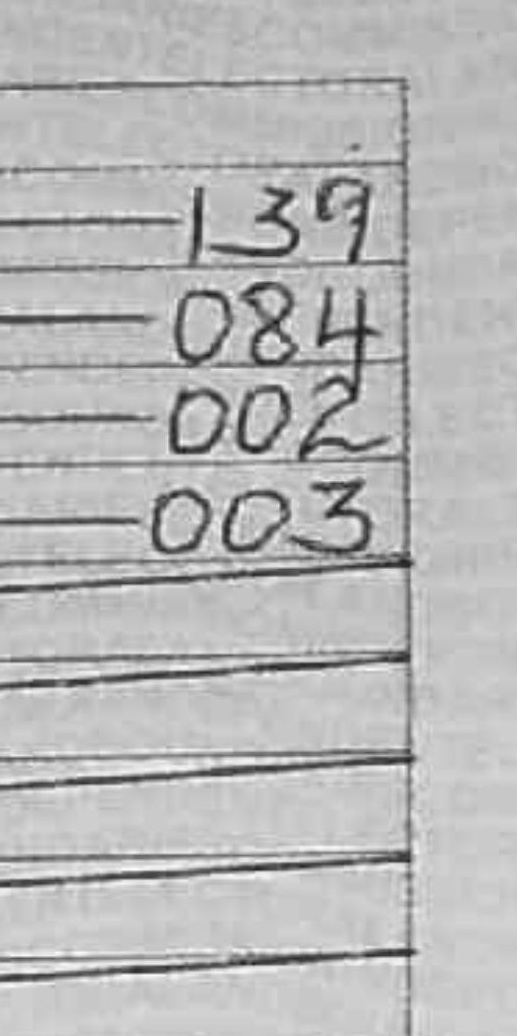 139
084
002
003